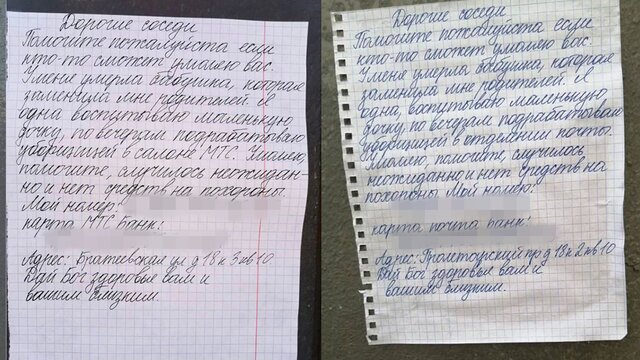 Дорогие соседи
Помогите пожалуйста если
кто-то сможет умаляю вас.
У мене умерла бабушка, которая
заменила мне родителей. Я
одна, воспитываю маленькую
дочку, по вечерам подрабатываю
уборщицей в салоне МТС. Умаляю,
помогите, случилось неожидан-
но и нет средств на похороны.
Мой номер:
карта МТС Банк:
Адрес: Братеевская ул д 18 к 3 кв 10
Дай Бог здоровья вам и
вашим близким.
Дорогие соседи
Помогите пожалуйста если
кто-то сможет умаляю вас.
У мене умерла бабушка, которая
заменила мне родителей. Я
одна, воспитываю маленькую
дочку, по вечерам подрабатываю
уборщицей в отделении почты.
Умаляю, помогите, случилось
неожиданно и нет средств на
похороны. Мой номер:
карта почта Банк:
Адрес: Пролетарский пр д 18 к 2 кв 10
Дай Бог здоровья вам и
вашим близким.